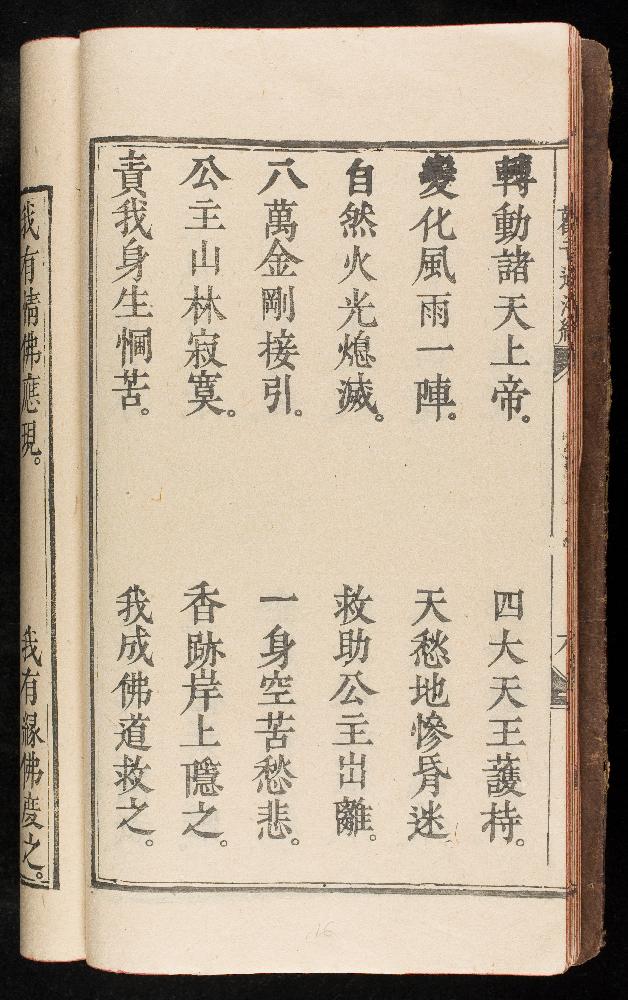 轉動諸天上帝。 四大天王護持。
變化風雨一陣。 天愁地慘昏迷
自然火光熄滅。 救助公主出離。
八萬金剛接引。 一身空苦愁悲。
公主山林寂寞。 香跡岸上隱之。
責我身生惘苦。 我成佛道救之。
我有情佛應現。 我有緣佛度之。
16